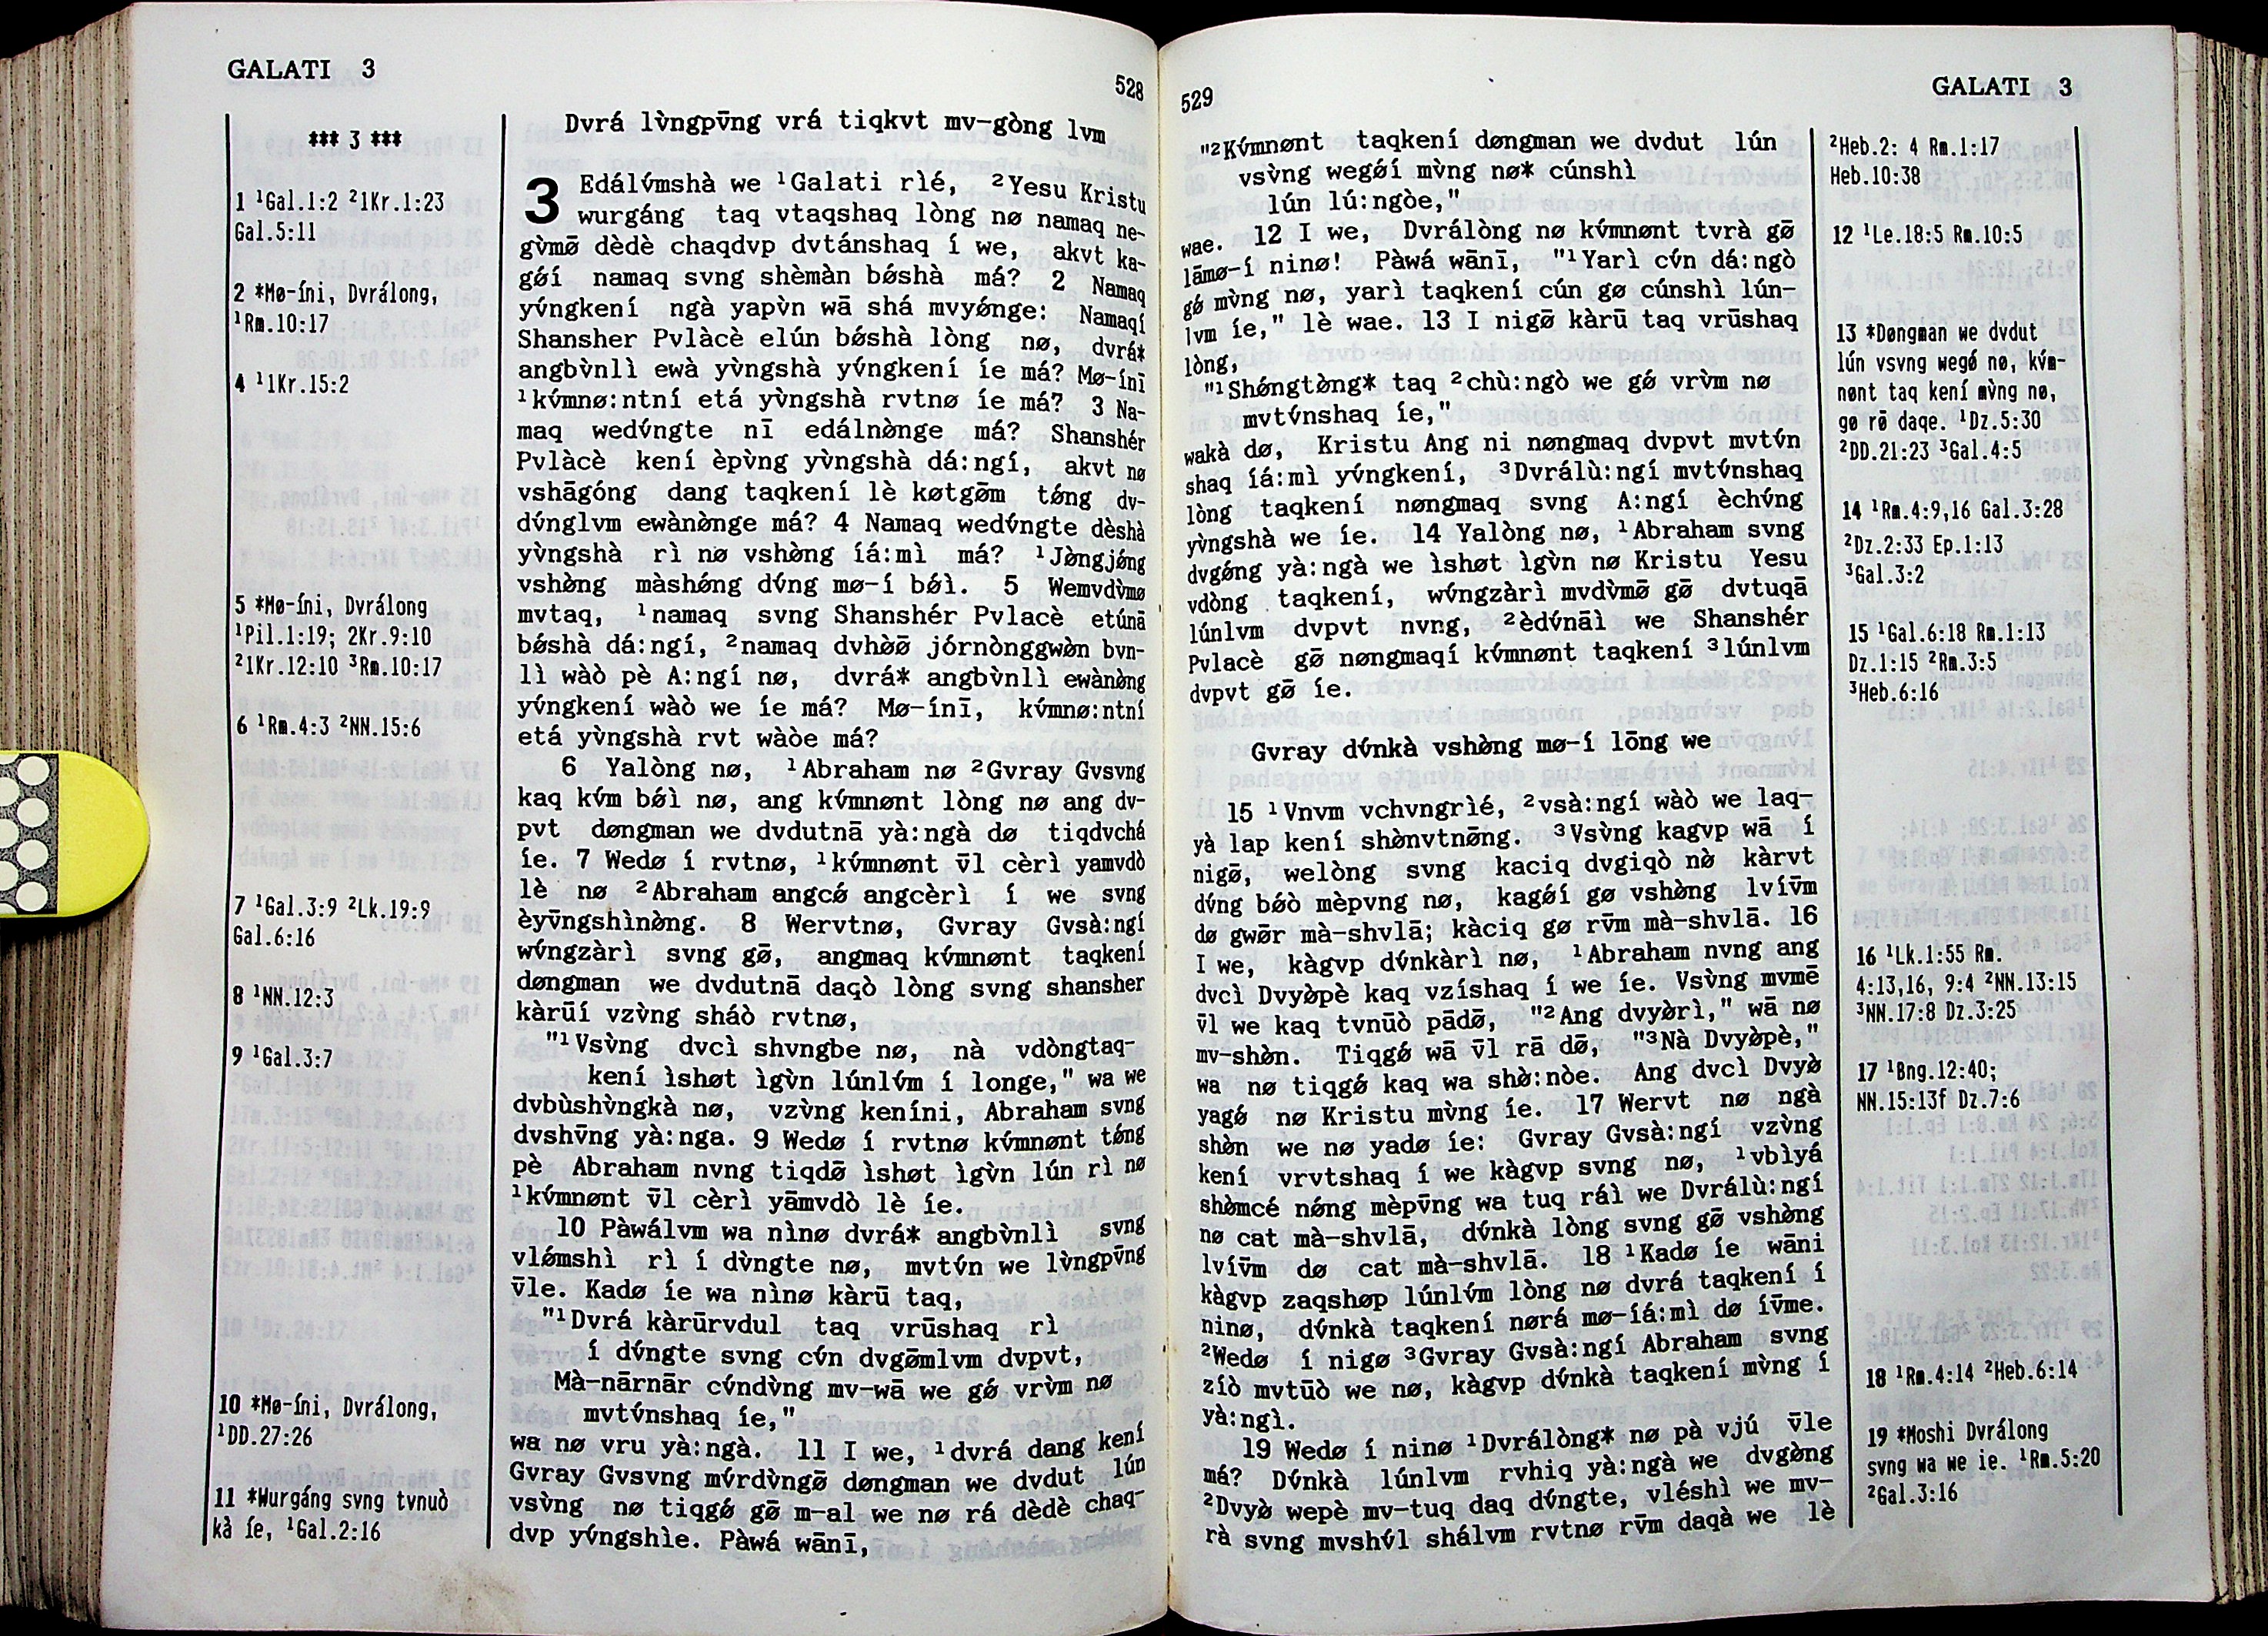 GALATI 3
528
*** 3 ***
1 ¹Gal.1:2 ²1Kr.1:23
Gal.5:11
2 *Mø-íni, Dvrálong,
¹Rm.10:17
4 ¹1Kr.15:2
5 *Mø-íni, Dvrálong
¹Pil.1:19; 2Kr.9:10
²1Kr.12:10 ³Rm.10:17
6 ¹Rm.4:3 ²NN.15:6
7 ¹Gal.3:9 ²Lk.19:9
Gal.6:16
8 ¹NN.12:3
9 ¹Gal.3:7
10 *Mø-íni, Dvrálong,
¹DD.27:26
11 *Wurgáng svng tvnuò
kà íe, ¹Gal.2:16
Dvrá lv̀ngpv̄ng vrá tiqkvt mv-gòng lvm
3 Edálv́mshà we ¹Galati rìé, ²Yesu Kristu
wurgáng taq vtaqshaq lòng nø namaq ne-
gv̀mø̄ dèdè chaqdvp dvtánshaq í we, akvt ka-
gǿí namaq svng shèmàn bǿshà má? 2 Namaq
yv́ngkení ngà yapv̀n wā shá mvyǿnge: Namaqí
Shansher Pvlàcè elún bǿshà lòng nø, dvrá*
angbv̀nlì ewà yv̀ngshà yv́ngkení íe má? Mø-ínī
¹kv́mnø:ntní etá yv̀ngshà rvtnø íe má? 3 Na-
maq wedv́ngte nī edálnø̀nge má? Shanshér
Pvlàcè kení èpv̀ng yv̀ngshà dá:ngí, akvt nø
vshāgóng dang taqkení lè køtgø̄m tǿng dv-
dv́nglvm ewànø̀nge má? 4 Namaq wedv́ngte dèshà
yv̀ngshà rì nø vshø̀ng íá:mì má? ¹Jø̀ngjǿng
vshø̀ng màshǿng dv́ng mø-í bǿì. 5 Wemvdv̀mø
mvtaq, ¹namaq svng Shanshér Pvlacè etùnā
bǿshà dá:ngí, ²namaq dvhø̀ø̄ jórnònggwø̀n bvn-
lì wàò pè A:ngí nø, dvrá* angbv̀nlì ewànø̀ng
yv́ngkení wàò we íe má? Mø-ínī, kv́mnø:ntní
etá yv̀ngshà rvt wàòe má?
6 Yalòng nø, ¹Abraham nø ²Gvray Gvsvng
kaq kv́m bǿì nø, ang kv́mnønt lòng nø ang dv-
pvt døngman we dvdutnā yà:ngà dø tiqdvchá
íe. 7 Wedø í rvtnø, ¹kv́mnønt v̄l cèrì yamvdò
lè nø ²Abraham angcǿ angcèrì í we svng
èyv̄ngshìnø̀ng. 8 Wervtnø, Gvray Gvsà:ngí
wv́ngzàrì svng gø̄, angmaq kv́mnønt taqkení
døngman we dvdutnā daqò lòng svng shansher
kàrūí vzv̀ng sháò rvtnø,
"¹Vsv̀ng dvcì shvngbe nø, nà vdòngtaq-
kení ìshøt ìgv̀n lúnlv́m í longe," wa we
dvbùshv̀ngkà nø, vzv̀ng keníni, Abraham svng
dvshv̄ng yà:nga. 9 Wedø í rvtnø kv́mnønt tǿng
pè Abraham nvng tiqdø̄ ìshøt ìgv̀n lún rì nø
¹kv́mnønt v̄l cèrì yāmvdò lè íe.
10 Pàwálvm wa nìnø dvrá* angbv̀nlì svng
vlǿmshì rì í dv̀ngte nø, mvtv́n we lv̀ngpv̄ng
v̄le. Kadø íe wa nìnø kàrū taq,
"¹Dvrá kàrūrvdul taq vrūshaq rì
í dv́ngte svng cv́n dvgø̄mlvm dvpvt,
Mà-nārnār cv́ndv̀ng mv-wā we gǿ vrv̀m nø
mvtv́nshaq íe,"
wa nø vru yà:ngà. 11 I we, ¹dvrá dang kení
Gvray Gvsvng mv́rdv̀ngø̄ døngman we dvdut lún
vsv̀ng nø tiqgǿ gø̄ m-al we nø rá dèdè chaq-
dvp yv́ngshìe. Pàwá wānī,
529
GALATI 3
"²Kv́mnønt taqkení døngman we dvdut lún
vsv̀ng wegǿí mv̀ng nø* cúnshì
lún lú:ngòe,"
wae. 12 I we, Dvrálòng nø kv́mnønt tvrà gø̄
lāmø-í ninø! Pàwá wānī, "¹Yarì cv́n dá:ngò
gǿ mv̀ng nø, yarì taqkení cún gø cúnshì lún-
lvm íe," lè wae. 13 I nigø̄ kàrū taq vrūshaq
lòng,
"¹Shǿngtø̀ng* taq ²chù:ngò we gǿ vrv̀m nø
mvtv́nshaq íe,"
wakà dø, Kristu Ang ni nøngmaq dvpvt mvtv́n
shaq íá:mì yv́ngkení, ³Dvrálù:ngí mvtv́nshaq
lòng taqkení nøngmaq svng A:ngí èchv́ng
yv̀ngshà we íe. 14 Yalòng nø, ¹Abraham svng
dvgǿng yà:ngà we ìshøt ìgv̀n nø Kristu Yesu
vdòng taqkení, wv́ngzàrì mvdv̀mø̄ gø̄ dvtuqā
lúnlvm dvpvt nvng, ²èdv́nāì we Shanshér
Pvlacè gø̄ nøngmaqí kv́mnønt taqkení ³lúnlvm
dvpvt gø̄ íe.
Gvray dv́nkà vshø̀ng mø-í lōng we
15 ¹Vnvm vchvngrìé, ²vsà:ngí wàò we laq-
yà lap kení shø̀nvtnø̄ng. ³Vsv̀ng kagvp wā í
nigø̄, welòng svng kaciq dvgiqò nø̀ kàrvt
dv́ng bǿò mèpvng nø, kagǿí gø vshø̀ng lvív̄m
dø gwø̄r mà-shvlā; kàciq gø rv̄m mà-shvlā. 16
I we, kàgvp dv́nkàrì nø, ¹Abraham nvng ang
dvcì Dvyø̀pè kaq vzíshaq í we íe. Vsv̀ng mvmē
v̄l we kaq tvnūò pādø̄, "²Ang dvyø̀rì," wā nø
mv-shø̀n. Tiqgǿ wā v̄l rā dø̄, "³Nà Dvyø̀pè,"
wa nø tiqgǿ kaq wa shø̀:nòe. Ang dvcì Dvyø̀
yagǿ nø Kristu mv̀ng íe. 17 Wervt nø ngà
shø̀n we nø yadø íe: Gvray Gvsà:ngí vzv̀ng
kení vrvtshaq í we kàgvp svng nø, ¹vbìyá
shø̀mcé nǿng mèpv̄ng wa tuq ráì we Dvrálù:ngí
nø cat mà-shvlā, dv́nkà lòng svng gø̄ vshø̀ng
lvív̄m dø cat mà-shvlā. 18 ¹Kadø íe wāni
kàgvp zaqshøp lúnlv́m lòng nø dvrá taqkení í
ninø, dv́nkà taqkení nørá mø-íá:mì dø ív̄me.
²Wedø í nigø ³Gvray Gvsà:ngí Abraham svng
zíò mvtūò we nø, kàgvp dv́nkà taqkení mv̀ng í
yà:ngì.
19 Wedø í ninø ¹Dvrálòng* nø pà vjú v̄le
má? Dv́nkà lúnlvm rvhiq yà:ngà we dvgø̀ng
²Dvyø̀ wepè mv-tuq daq dv́ngte, vléshì we mv-
rà svng mvshv́l shálvm rvtnø rv̄m daqà we lè
²Heb.2: 4 Rm.1:17
Heb.10:38
12 ¹Le.18:5 Rm.10:5
13 *Døngman we dvdut
lún vsvng wegǿ nø, kv́m-
nønt taq kení mv̀ng nø,
gø rē daqe. ¹Dz.5:30
²DD.21:23 ³Gal.4:5
14 ¹Rm.4:9,16 Gal.3:28
²Dz.2:33 Ep.1:13
³Gal.3:2
15 ¹Gal.6:18 Rm.1:13
Dz.1:15 ²Rm.3:5
³Heb.6:16
16 ¹Lk.1:55 Rm.
4:13,16, 9:4 ²NN.13:15
³NN.17:8 Dz.3:25
17 ¹Bng.12:40;
NN.15:13f Dz.7:6
18 ¹Rm.4:14 ²Heb.6:14
19 *Moshi Dvrálong
svng wa we ie. ¹Rm.5:20
²Gal.3:16